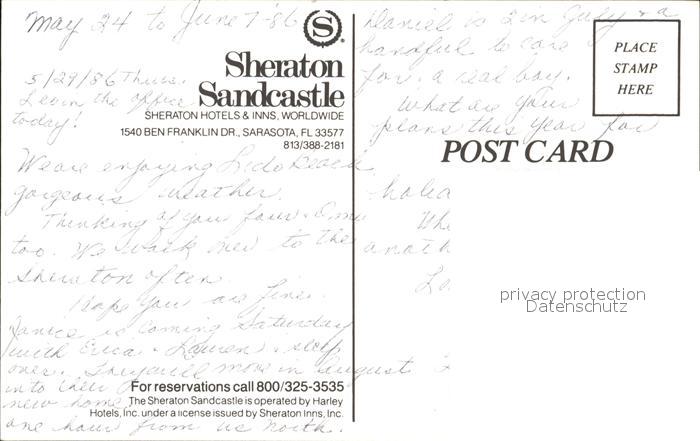 May 24 to June 7 '86
S
Sheraton
Sandcastle
SHERATON HOTELS & INNS, WORLDWIDE
1540 BEN FRANKLIN DR., SARASOTA, FL 33577
813/388-2181
5/29/86 Thurs.
in the office
today!
We are enjoying Lido Beach
gorgeous weather.
Thinking of you four
too. We walk over to the
Sheraton often.
Hope you are fine.
Janice is coming Saturday
with Erica & Lauren & sleep
over. They will move in August
into their
new home
one hour from us North.
For reservations call 800/325-3535
The Sheraton Sandcastle is operated by Harley
Hotels, Inc. under a license issued by Sheraton Inns, Inc.
Daniel is 2 in July & a
handful to care
for. a real boy.
What are your
plans this year for
POST CARD
PLACE
STAMP
HERE
privacy protection
Datenschutz